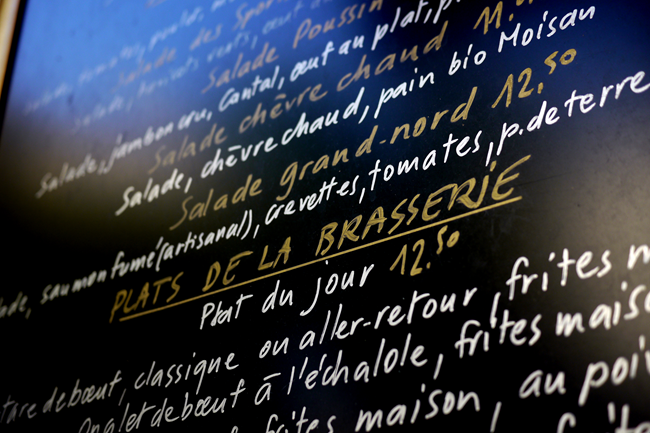 Salade des Spor
Salade Poussin
Salade, jambon cru, Cantal, œuf au plat, p
Salade chèvre chaud 11.
Salade, chèvre chaud, pain bio Moisan
Salade grand-nord 12.50
ade, saumon fumé (artisanal), crevettes, tomates, p. de terre
PLATS DE LA BRASSERIE
Plat du jour 12.50
tare de bœuf, classique ou aller-retour, frites m
Onglet de bœuf à l'échalole, frites maiso
frites maison, au poiv